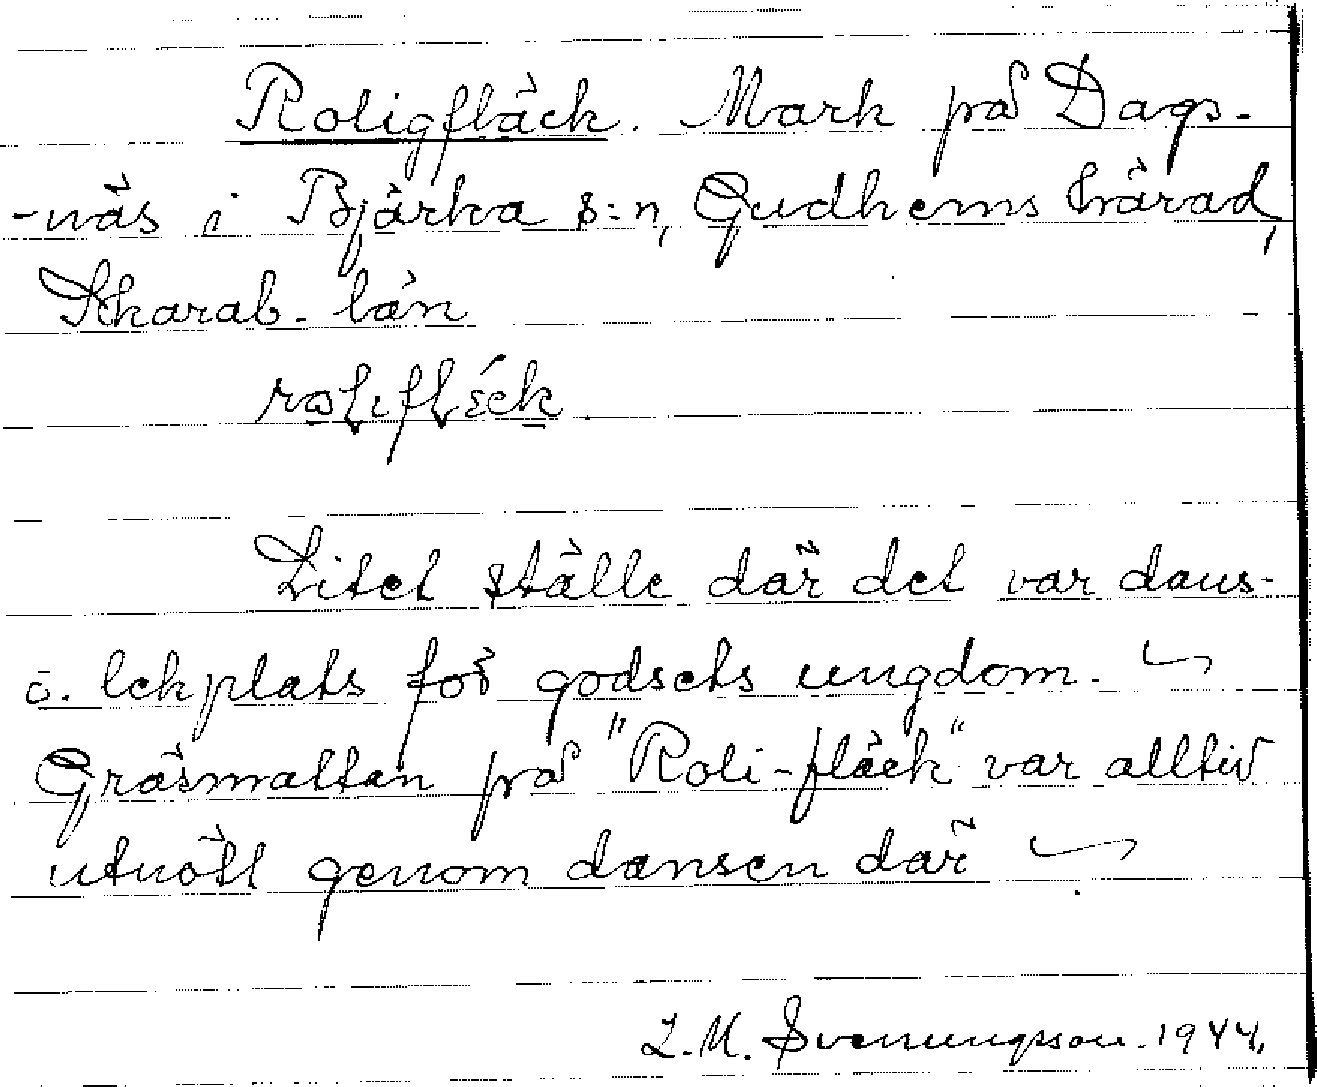 Roligfläck. Mark på Dags-
-näs i Bjärka s:n, Gudhems härad,
Skarab. län
Litet ställe där det var dans-
o. lekplats för godsets ungdom.
Gräsmattan på "Roli-fläck" var alltid
utnött genom dansen där
L.M. Svenungsson. 1944.